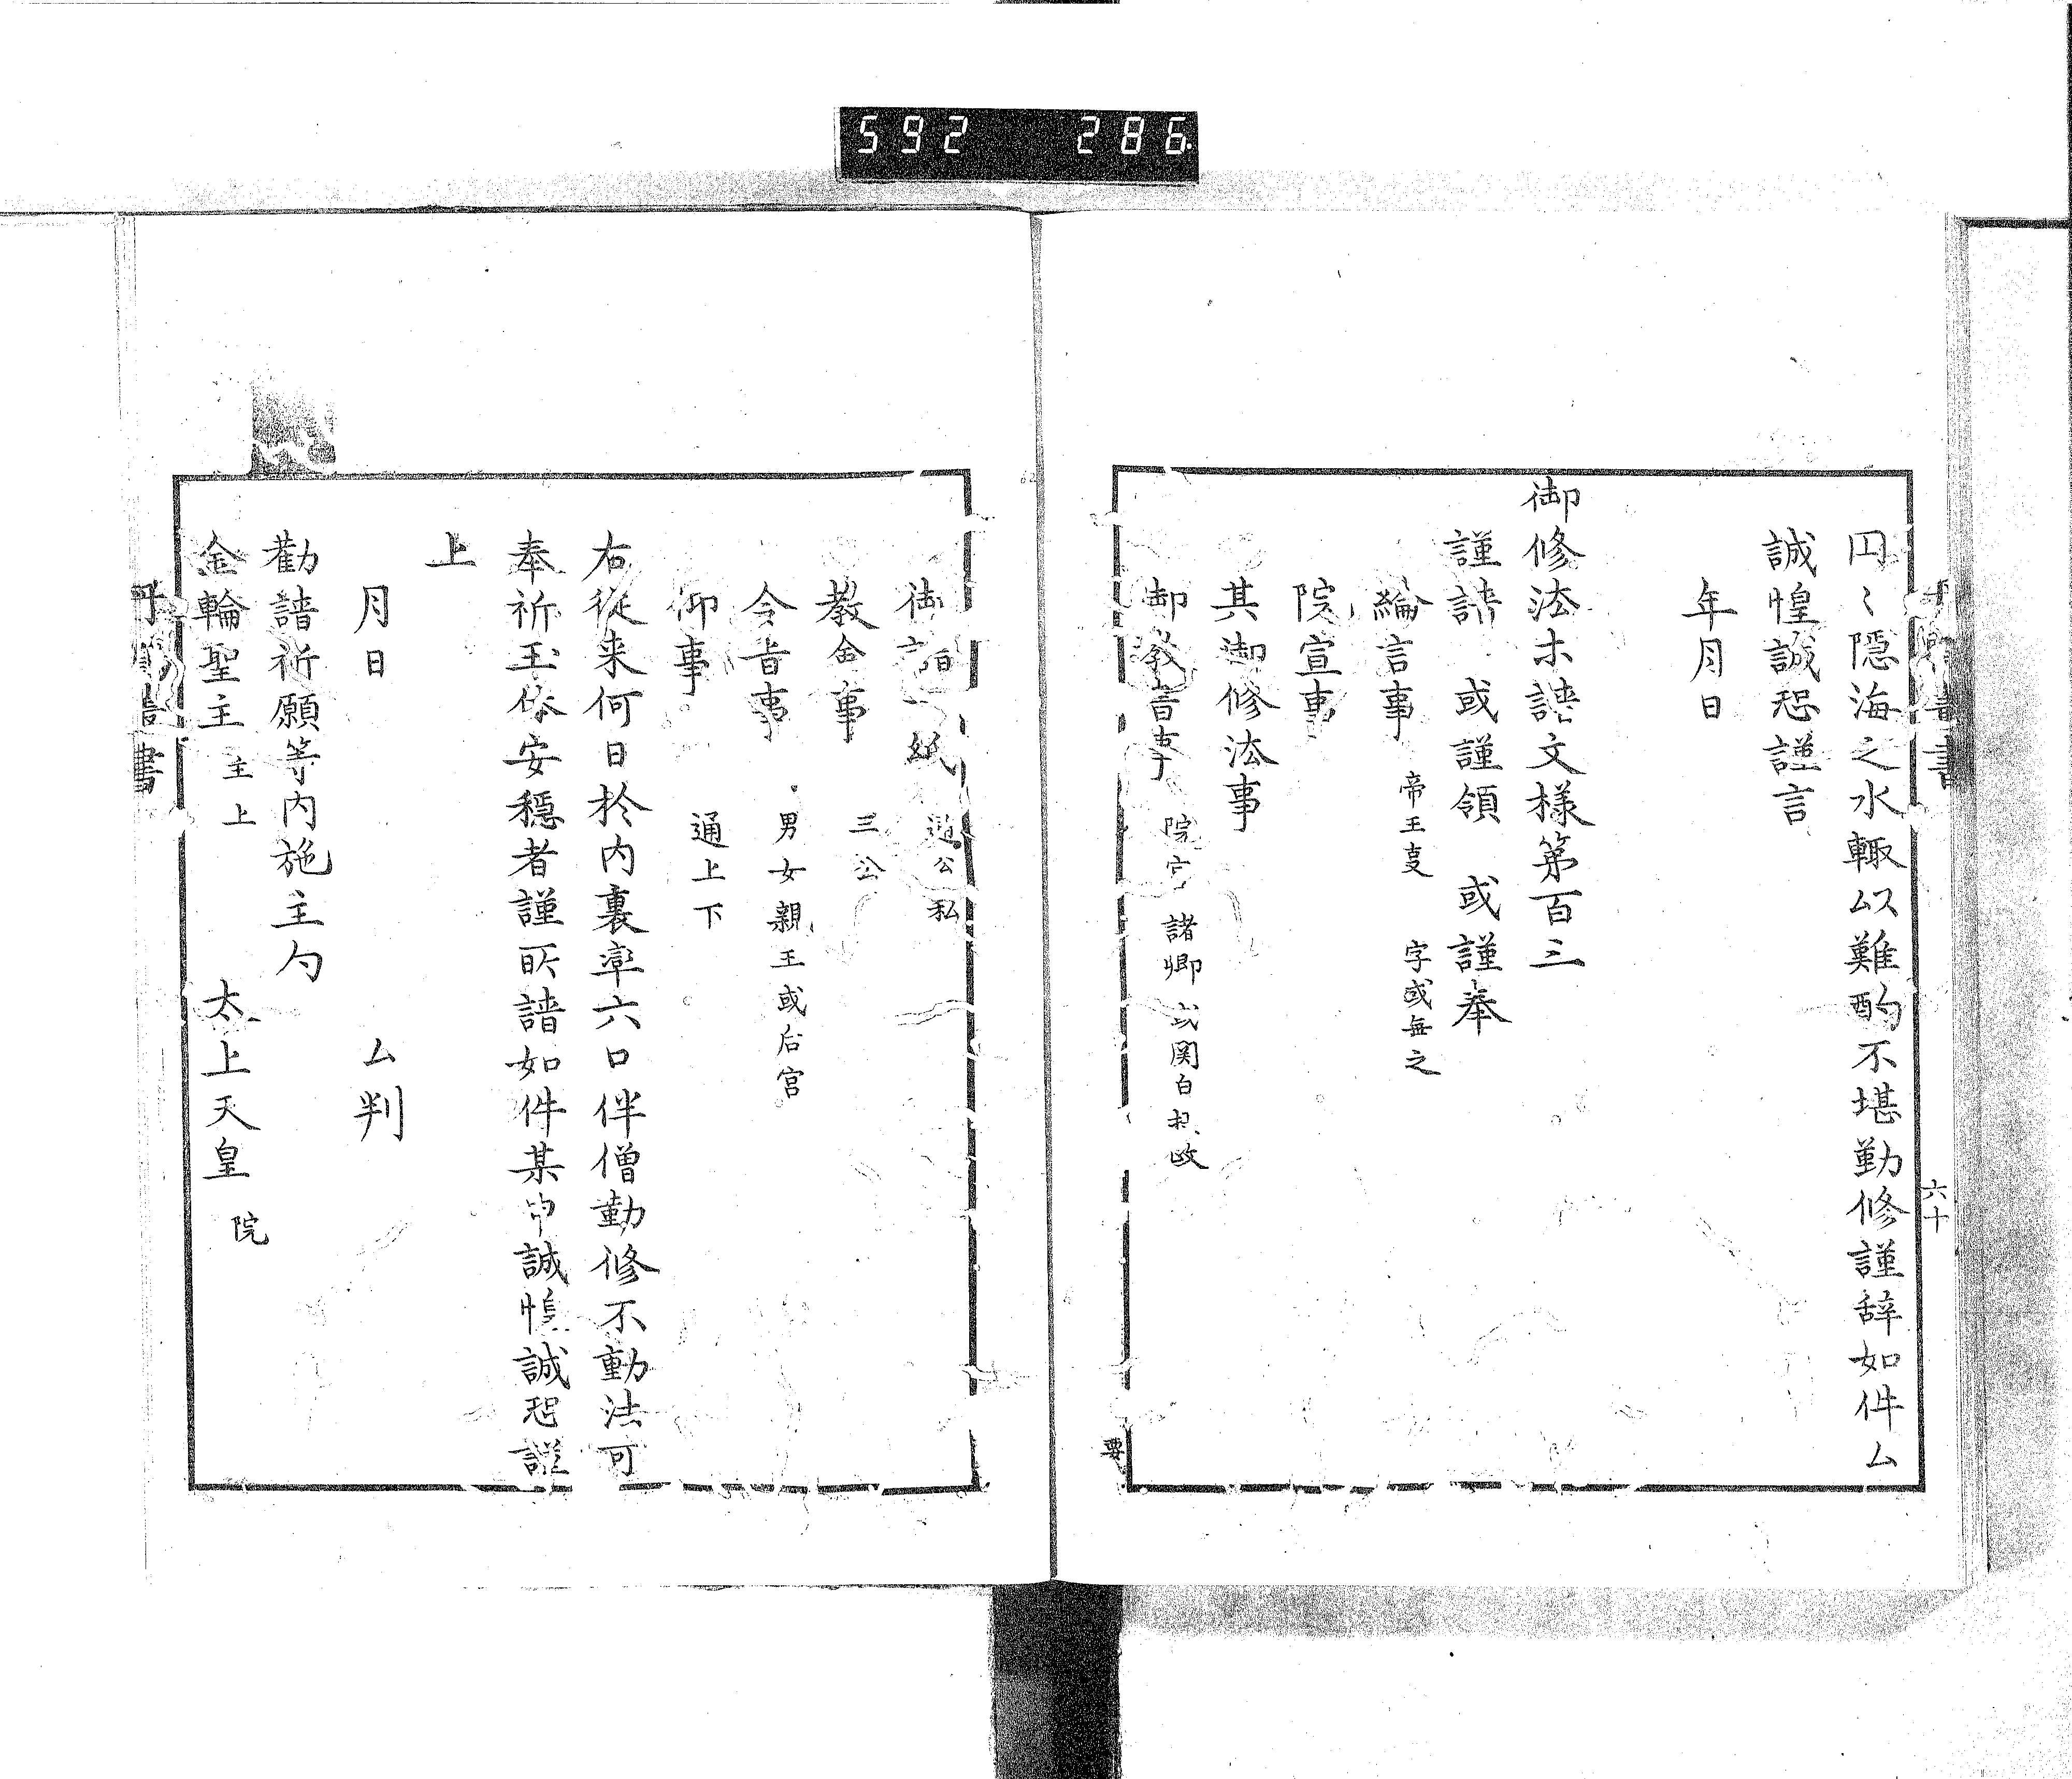 592 286
六十
円〻隠海之水輙以難酌不堪勤修謹辞如件ム
誠惶誠恐謹言
年月日
御修法ホ請文様第百三
謹請 或謹領 或謹奉
綸言事 帝王㕝 字或無之
院宣事
其御修法事
御教旨事 院宮 諸卿 或関白摂政
要
御請一紙 通公私
教命事 三公
令旨事 男女親王或后宮
仰事 通上下
右従来何日於内裏率六口伴僧勤修不動法可
奉祈玉体安穏者謹所請如件某 誠惶誠恐謹
上
月日 ム判
勧請祈願等内施主句
金輪聖主 主上 太上天皇 院